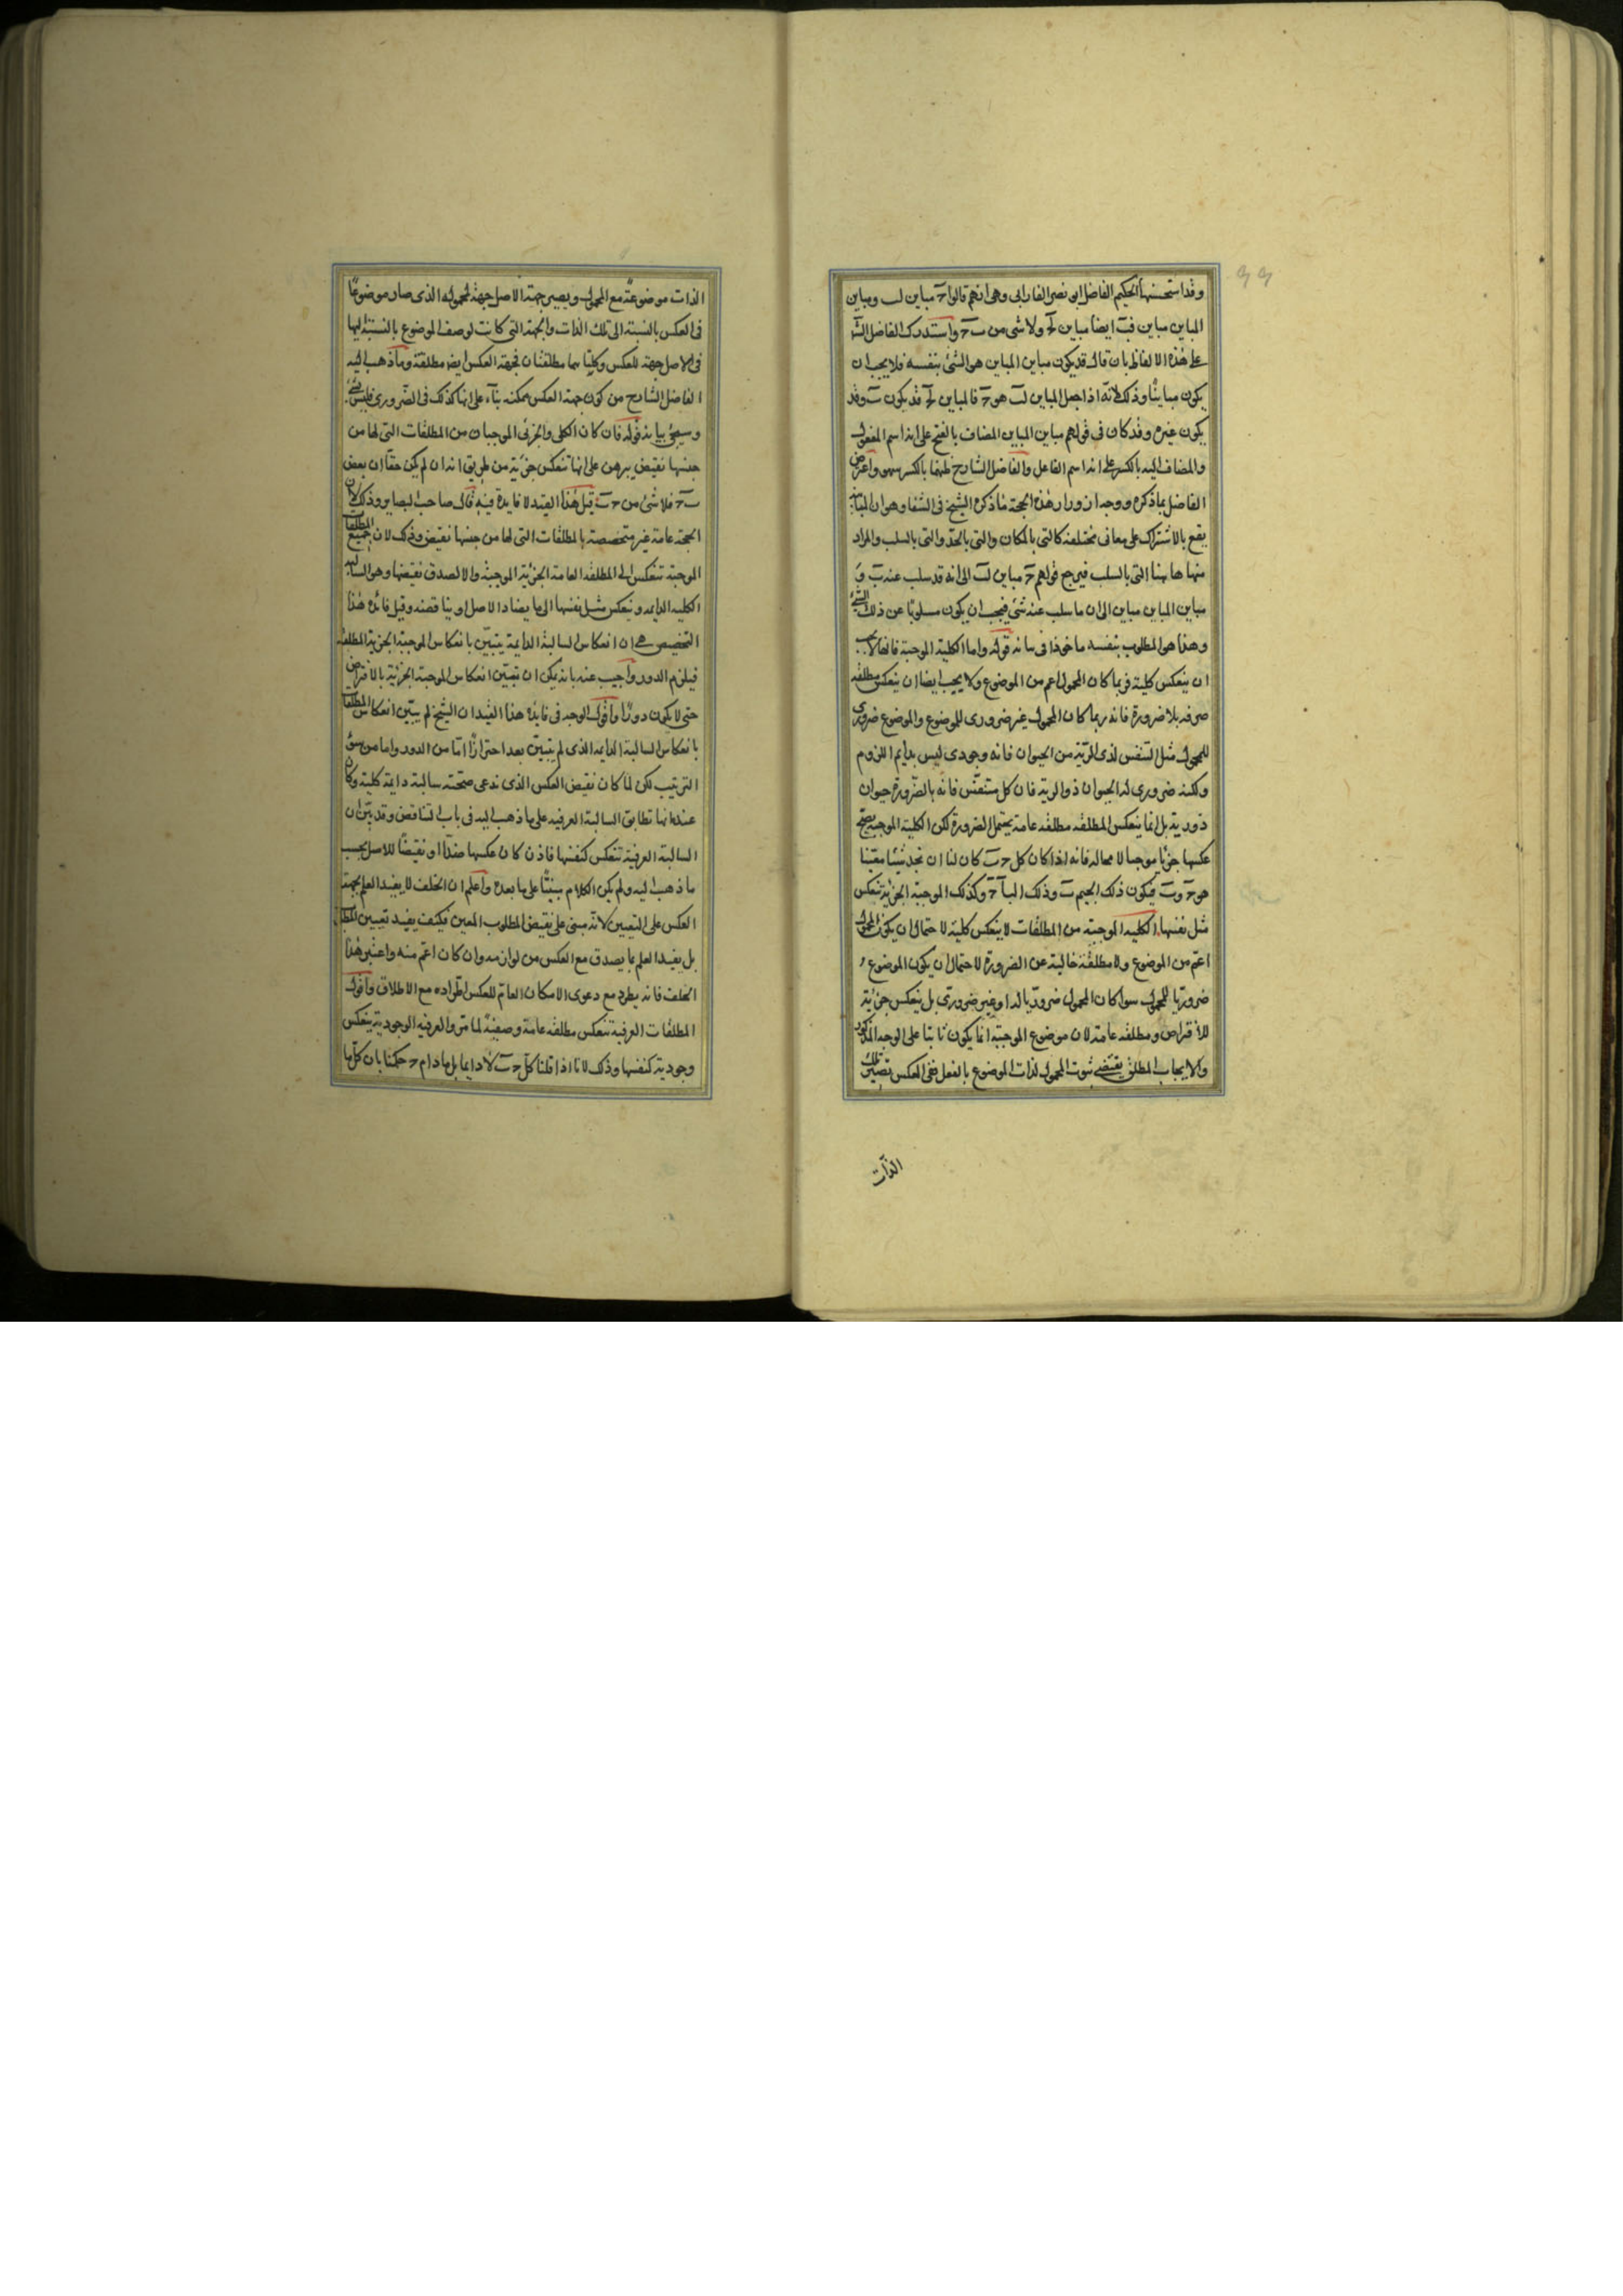 وقد استحسنها الحكيم الفاضل ابو نصر الفارابى وهى انهم قالوا حٓ مباين لب ومباين
المباين مباين فبٓ ايضا مباين لحٓ ولا شئ من بٓ حٓ واستدرك الفاضل الشا
على هذه الالفاظ بان قال قد يكون مباين المباين هو الشئ بنفسه فلا يجب ان
يكون مباينًا وذلك لانّه اذا جعل المباين لبٓ هو حٓ فالمباين لحٓ قد يكون بٓ وقد
يكون غيره وقد كان فى قولهم مباين المباين المضاف بالفتح على انه اسم المفعول
والمضاف اليه بالكسر على انه اسم الفاعل والفاضل الشارح ظنهما بالكسر سهوا واعترض
الفاضل بما ذكره ووجد ان ورا هذه الحجة ما ذكره الشيخ فى الشفا وهو ان المباينة
يقع بالاشتراك على معانى مختلفة كالتى بالمكان والتى بالحدّ والتى بالسلب والمراد
منها هاهنا التى بالسلب فيرجع قولهم حٓ مباين لبٓ الى انه قد سلب عنه بٓ و
مباين المباين مباين الى ان ما سلب عنه شئ فيجب ان يكون مسلوبًا عن ذلك الشئ
وهذا هو المطلوب بنفسه ماخوذا فى بيانه قوله واما الكلية الموجبة فانها لا يجب
ان ينعكس كلية فربما كان المحمول اعم من الموضوع ولا يجب ايضا ان ينعكس مطلقه
صرفه بلا ضرورة فانه ربما كان المحمول غير ضرورى للموضوع والموضوع ضرورى
للمحمول مثل التنفس لذى الرّية من الحيوان فانه وجودى ليس بدايم اللزوم
ولكنه ضرورى له الحيوان ذو الرية فان كل متنفّس فانه بالضرورة حيوان
ذو رية بل انما ينعكس المطلقه مطلقه عامة يحتمل الضرورة لكن الكلية الموجبه يصح
عكسها جزئيا موجبا لا محاله فانه اذا كان كل حٓ بٓ كان لنا ان نجد شيئا معيّنا
هو حٓ وبٓ فيكون ذلك الجيم بٓ وذلك البآ حٓ وكذلك الموجبة الجزئية تنعكس
مثل نفسها الكليه الموجبة من المطلقات لا ينعكس كلية لاحتمال ان يكون المحمول
اعمّ من الموضوع ولا مطلقة خالية عن الضرورة لاحتمال ان يكون الموضوع
ضروريا للمحمول سوا كان المحمول ضروريا له او غير ضرورى بل ينعكس جزئية
للافتراض ومطلقه عامة لان موضوع الموجبة انما يكون ثابتا على الوجه المذكور
والايجاب المطلق يقتضى ثبوت المحمول لذات الموضوع بالفعل ففى العكس تصير تلك
الذات
الذات موضوعة مع المحمول ويصير جهة الاصل جهة لمحموله الذى صار موضوعًا
فى العكس بالنسبة الى تلك الذات والجهة التى كانت لوصف الموضوع بالنسبة اليها
فى الاصل جهة للعكس وكليتاهما مطلقتان فجهة العكس ايضا مطلقة وما ذهب اليه
الفاضل الشارح من كون جهة العكس ممكنه بنآء على انها كذلك فى الضرورى فليس بشئ
وسيجئ بيانه قوله فان كان الكلى والجزئى الموجبان من المطلقات التى لها من
جنسها نقيض يبرهن على انها تنعكس جزئية من طريق انه ان لم يكن حقّا ان بعض
بٓ حٓ فلا شئ من حٓ بٓ قيل هذا القيد لا فايدة فيه قال صاحب البصاير وذلك لان
الحجة عامة غير متخصصة بالمطلقات التى لها من جنسها نقيض وذلك لان جميع المطلقات
الموجبة تنعكس الى المطلقه العامة الجزئية الموجبة والا لصدق نقيضها وهو السالبة
الكليه الدايمه وينعكس مثل نفسها الى ما يضاد الاصل او يناقضه وقيل فائدة هذا
التخصيص هى ان انعكاس السالبة الدايمة يتبيّن بانعكاس الموجبة الجزئية المطلقه
فيلزم الدور واجيب عنه بانه يمكن ان تبيّن انعكاس الموجبة الجزئية بالافتراض
حتى لا يكون دورًا واقول الوجه فى فايدة هذا القيد ان الشيخ لم يبيّن انعكاس المطلقات
بانعكاس السالبة الدايمه الذى لم يتبيّن بعد احترازًا امّا من الدور واما من سوء
الترتيب لكن لما كان نقيض العكس الذى ندعى صحّته سالبة دايمة كلية وكان
عنده انها تطابق السالبة العرفيه على ما ذهب اليه فى باب التناقض وقد بيّن ان
السالبة العرفية تنعكس كنفسها فاذن كان عكسها ضدّا او نقيضًا للاصل بحسب
ما ذهب اليه ولم يكن الكلام مبنيًّا على ما بعده واعلم ان الخلف لا يفيد العلم بجهة
العكس على التعيين لانّه مبنى على نقيض المطلوب المعين فكيف يفيد تعيين المطلوب
بل يفيد العلم بما يصدق مع العكس من لوازمه وان كان اعمّ منه واعتبر هذا
الخلف فانه يطرد مع دعوى الامكان العامّ للعكس اطّراده مع الاطلاق واقول
المطلقات العرفية تنعكس مطلقه عامة وصفيةً لما مرّ والعرفيه الوجودية ينعكس
وجودية كنفسها وذلك لانا اذا قلنا كلّ حٓ بٓ لا دايما بل ما دام حٓ حكمنا بان كلّ ما